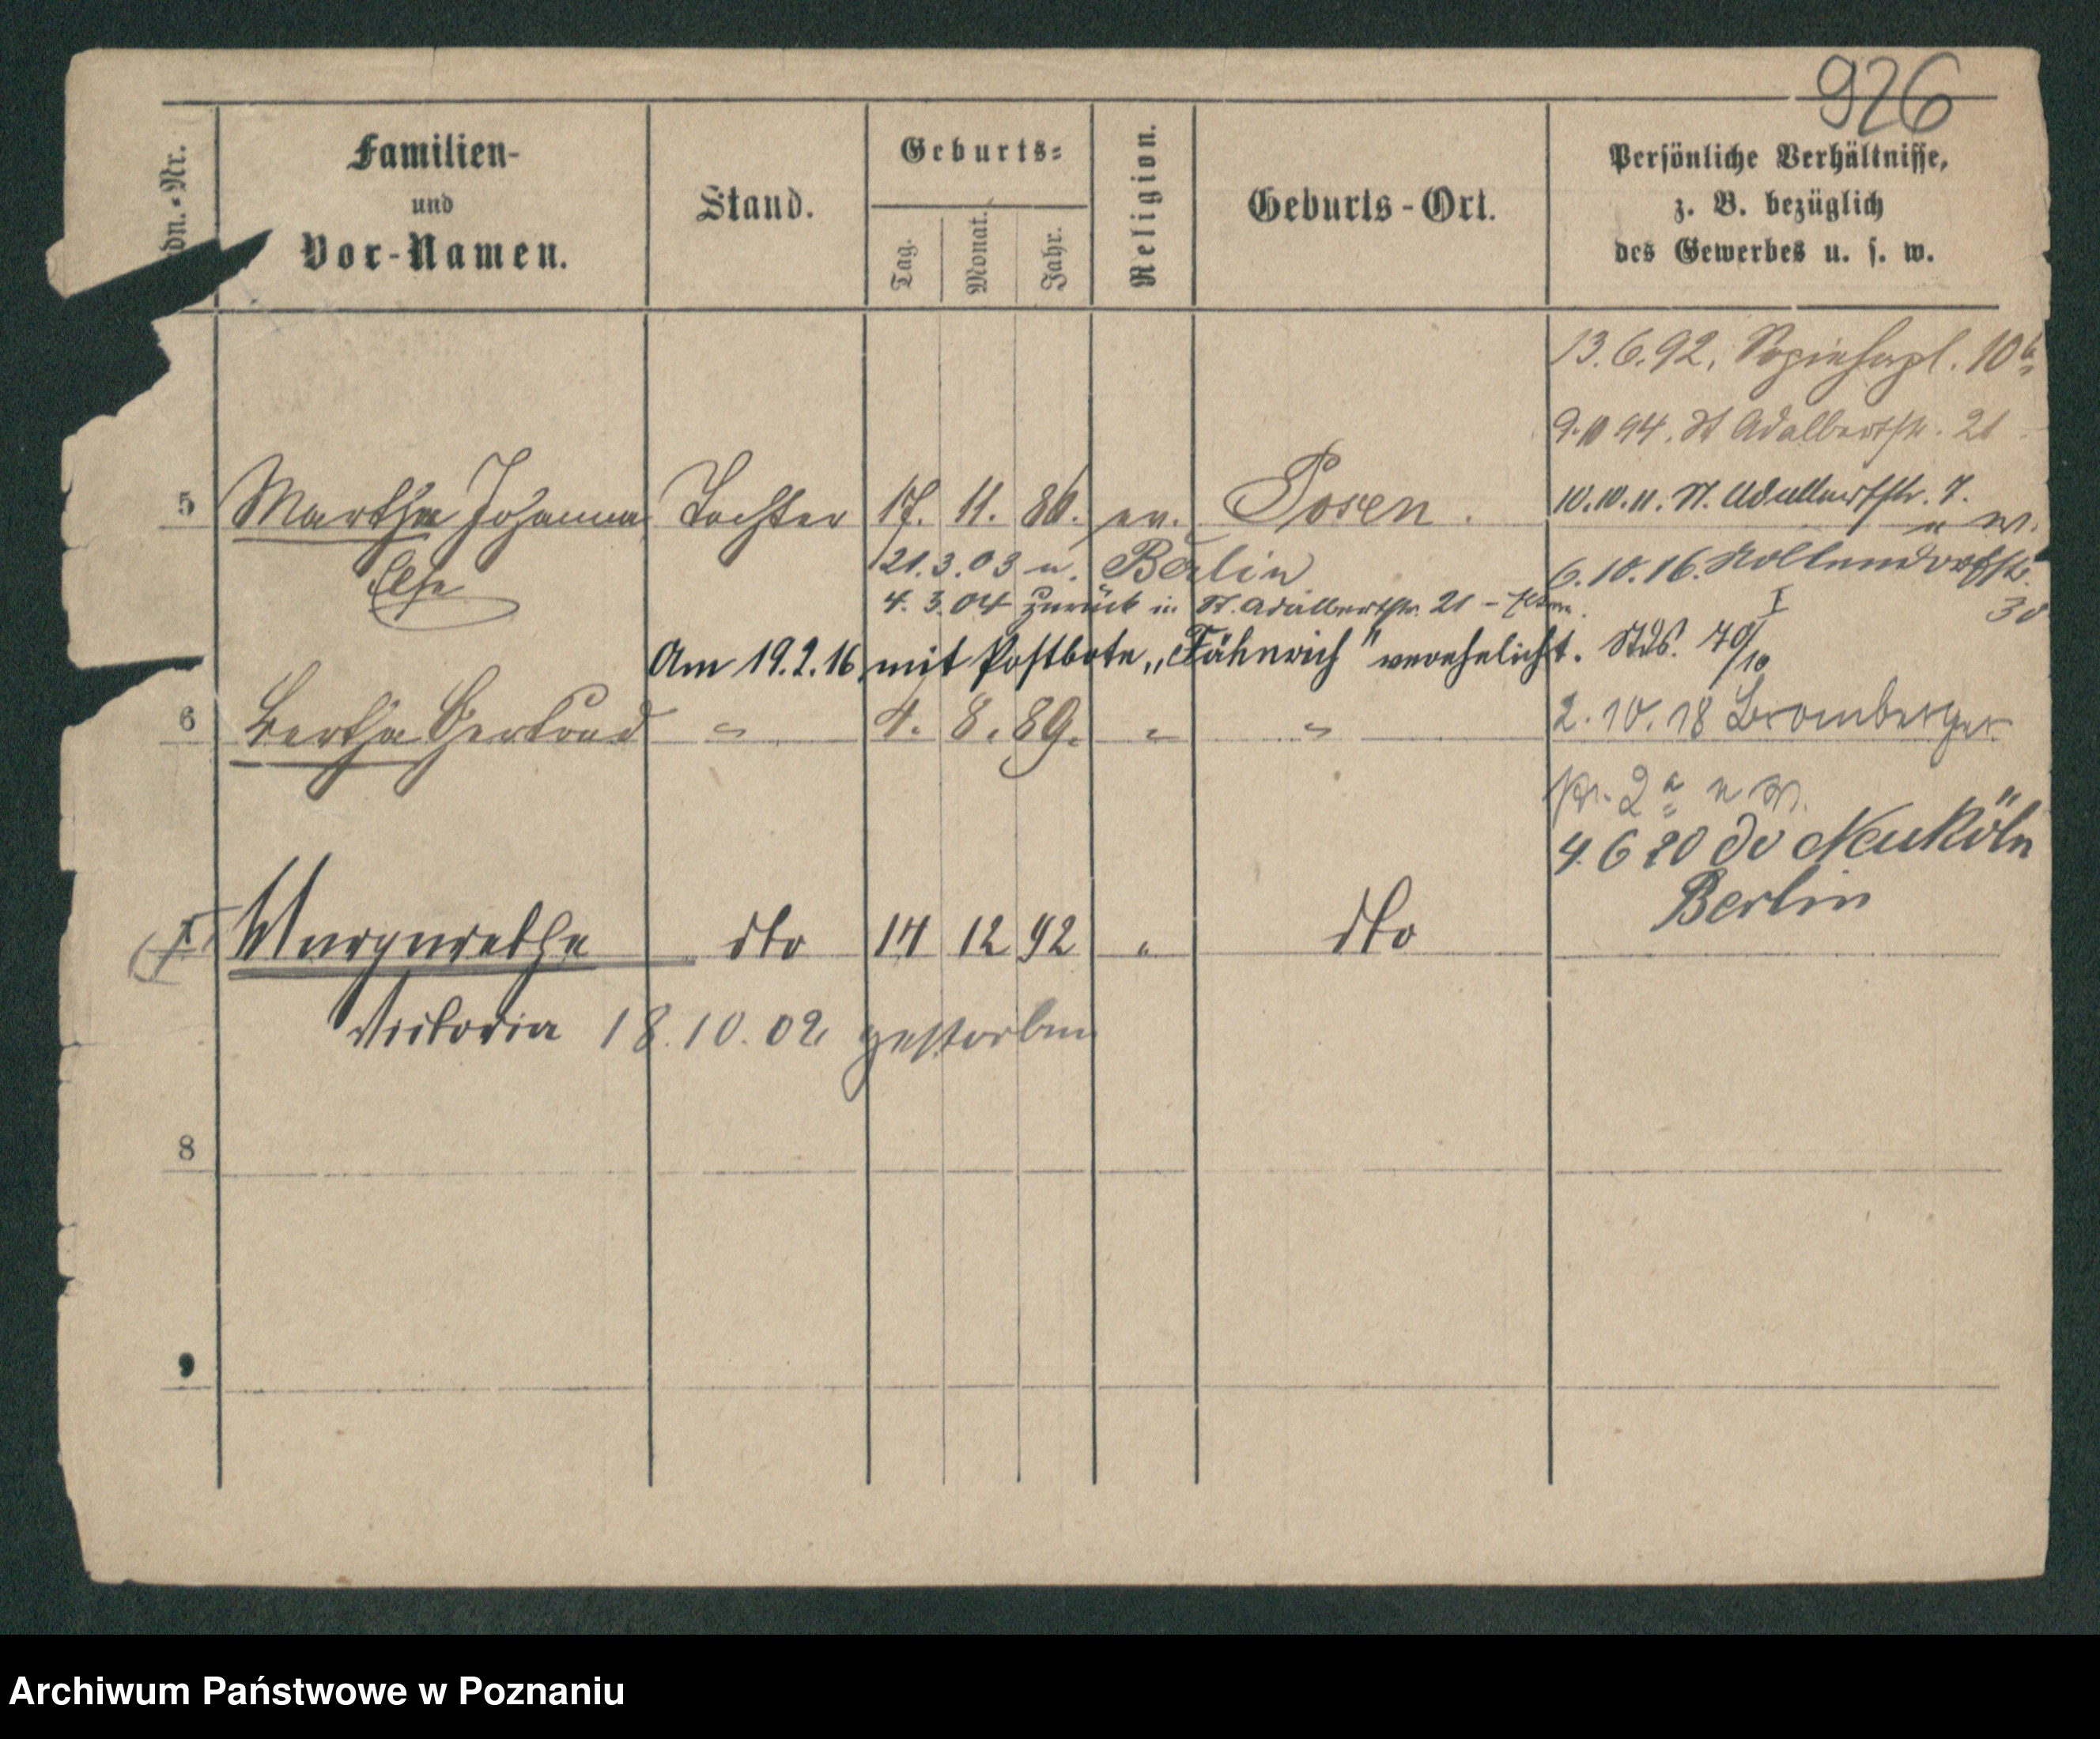 926
dn.-Nr.
Familien-
und
Vor-Namen.
Stand.
Geburts-
Tag.
Monat.
Jahr.
Religion.
Geburts-Ort.
Persönliche Verhältnisse,
z. B. bezüglich
des Gewerbes u. s. w.
13.6.92, Sapiehapl. 10b
9.10 94. St Adalbertstr. 21
5 Martha Johanna Tochter 17. 11. 86. ev. Posen. 10.10.11. St. Adalbertstr. 7.
n W.
Else 21.3.03 n. Berlin 6.10.16. Hollendorfstr.
4. 3. 04 zurück in St. Adalbertstr. 21 - 30
I
Am 19.2.16 mit Postbote „Fähnrich" verehelicht. StdS. 70/10
6 Bertha Gertrud " 4. 8. 89. " " 2.10.18 Bromberger
str. 2a n W.
4.6 20 do Neukölln
Berlin
7 Margarethe dto 14 12 92 " dto
Victoria 18.10.02 gestorben
8
9
Archiwum Państwowe w Poznaniu